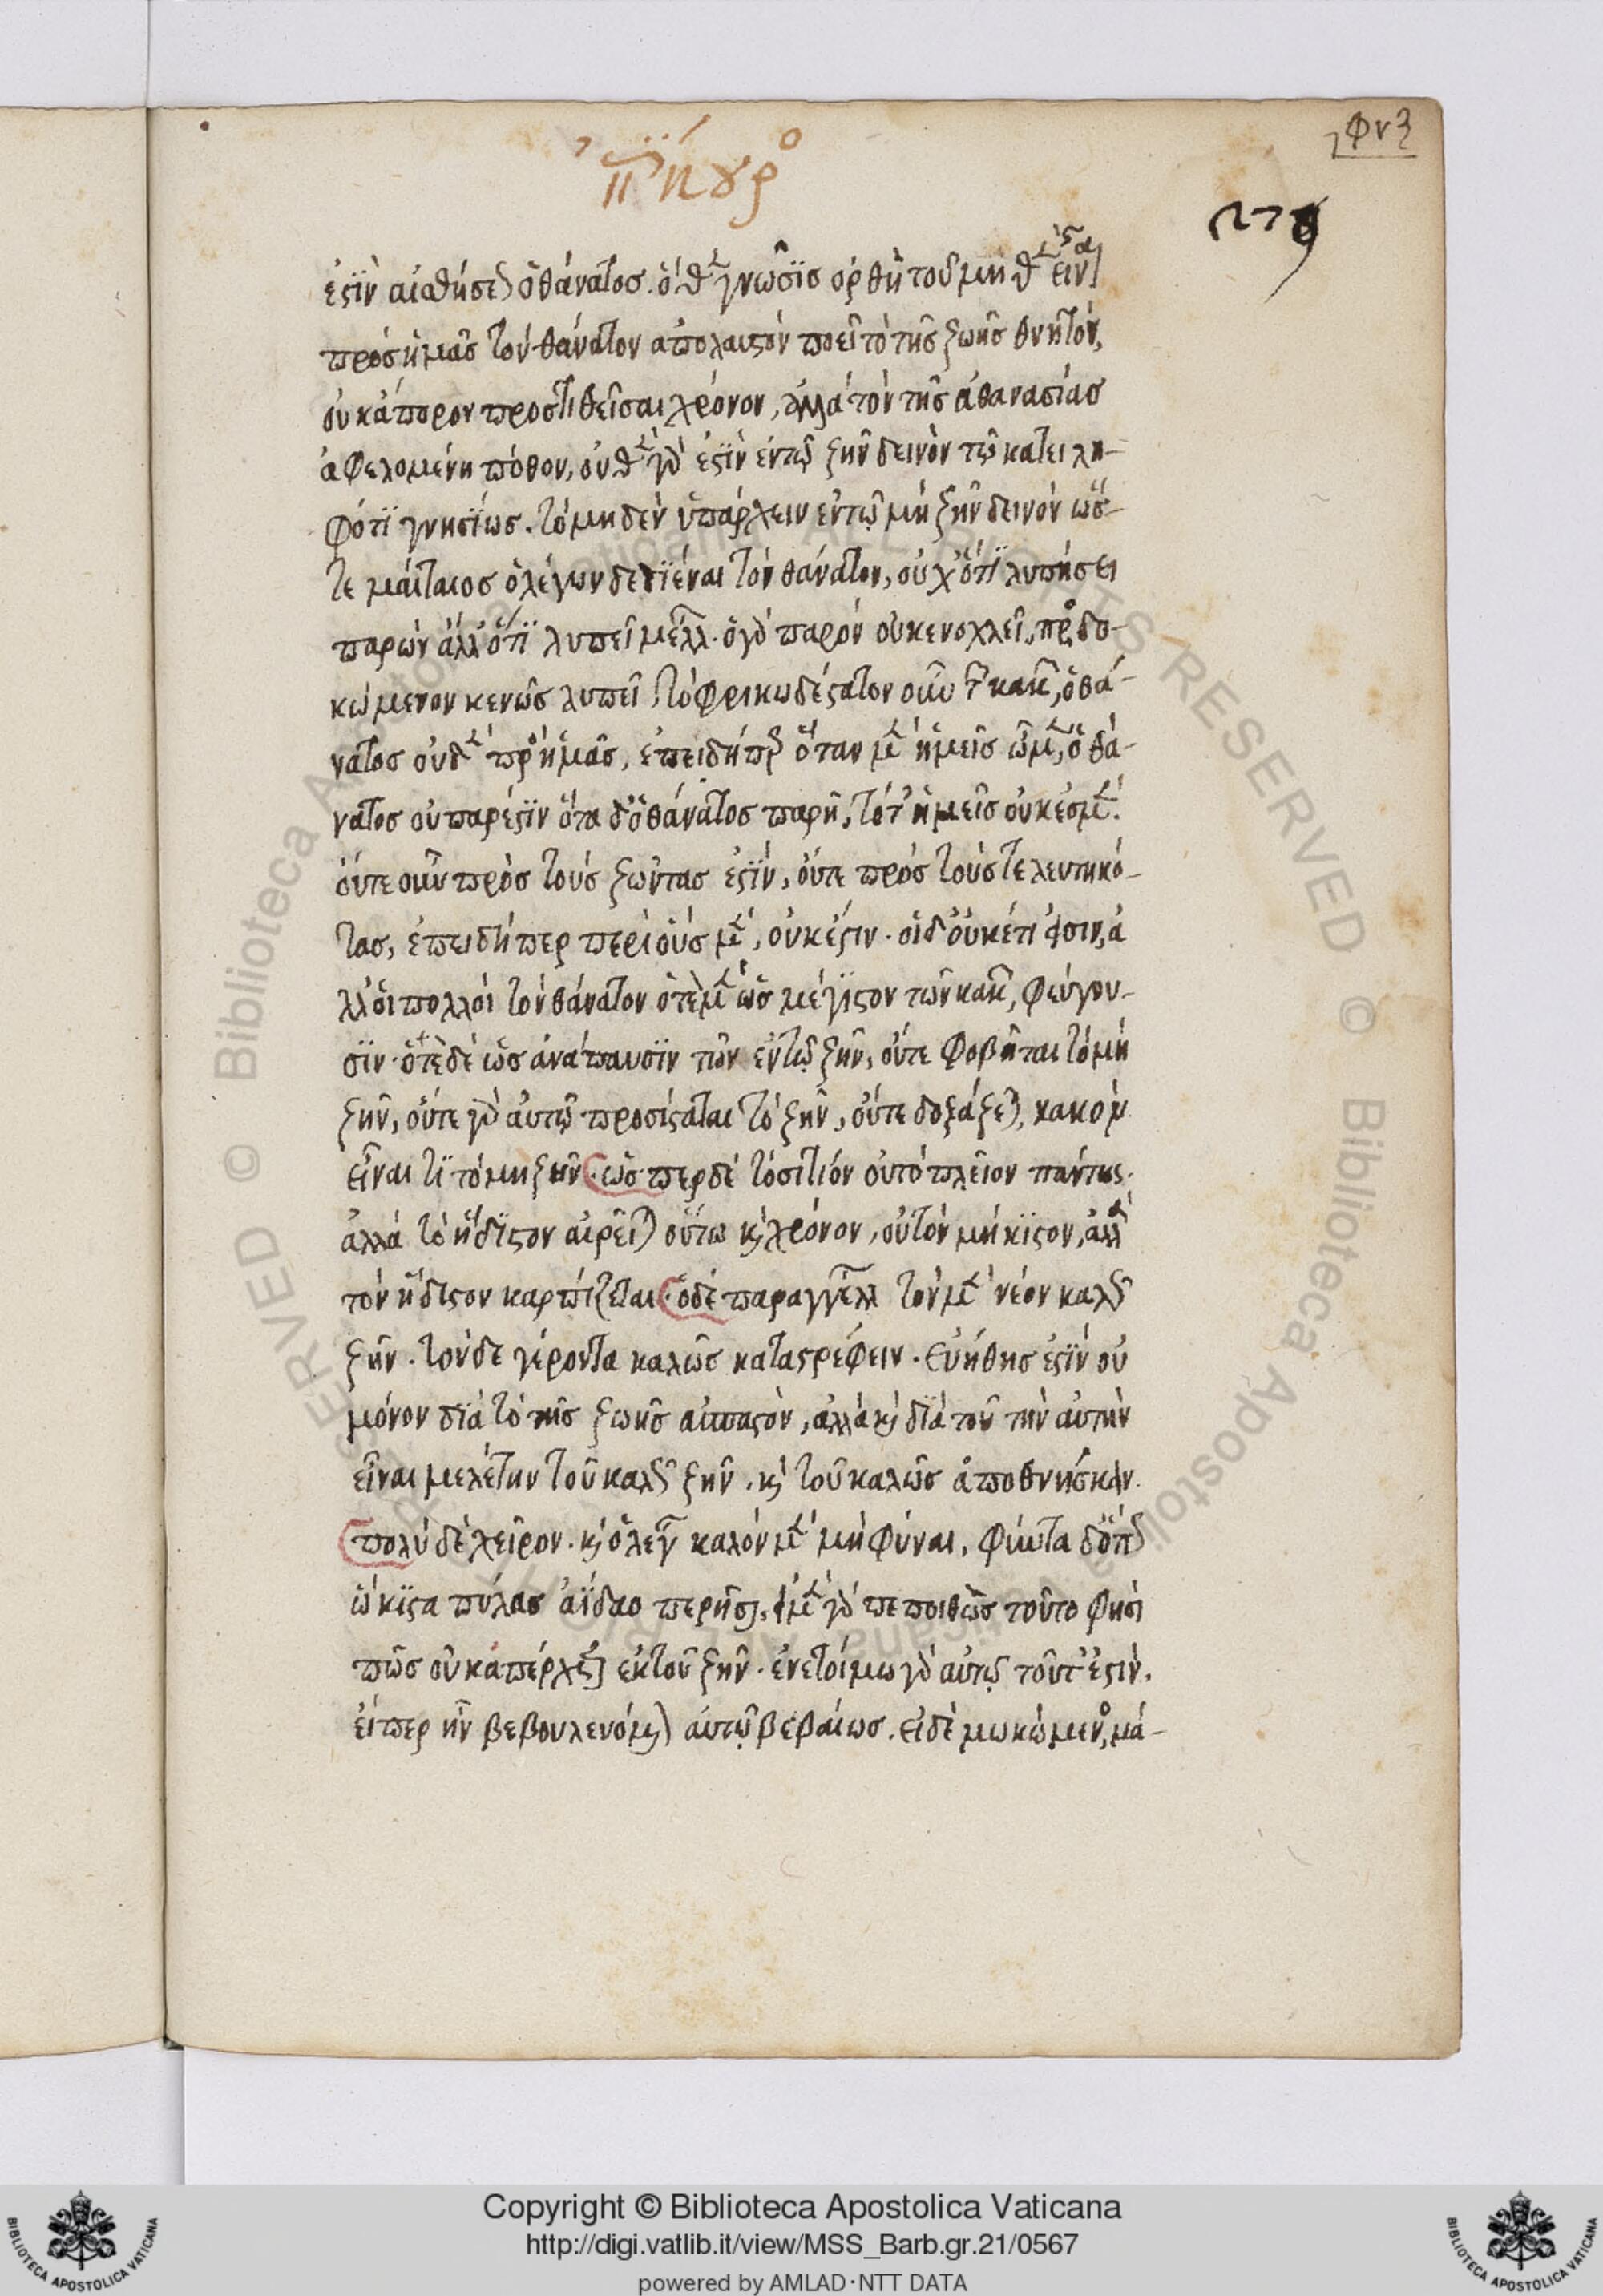 φνζ
ἐπίκουρος
279
ἐστὶν αἰσθήσεως ὁ θάνατος. ὅθεν γνῶσις ὀρθὴ τοῦ μηθὲν εἶναι
πρὸς ἡμᾶς τὸν θάνατον ἀπολαυστὸν ποιεῖ τὸ τῆς ζωῆς θνητόν,
οὐκ ἄπορον προστιθεῖσαι χρόνον, ἀλλὰ τὸν τῆς ἀθανασίας
ἀφελομένη πόθον, οὐθὲν γάρ ἐστιν ἐν τῷ ζῆν δεινὸν τῷ κατειλη-
φότι γνησίως. τὸ μηδὲν ὑπάρχειν ἐν τῷ μὴ ζῆν δεινὸν ὥσ-
τε μάταιος ὁ λέγων δεδιέναι τὸν θάνατον, οὐχ ὅτι λυπήσει
παρών ἀλλ' ὅτι λυπεῖ μέλλων. ὃ γὰρ παρὸν οὐκ ἐνοχλεῖ, προσδο-
κώμενον κενῶς λυπεῖ, τὸ φρικωδέστατον οὖν τῶν κακῶν, ὁ θά-
νατος οὐδὲν πρὸς ἡμᾶς, ἐπειδήπερ ὅταν μὲν ἡμεῖς ὦμεν, ὁ θά-
νατος οὐ πάρεστιν ὅταν δ' ὁ θάνατος παρῇ, τόθ' ἡμεῖς οὐκ ἐσμέν.
οὔτε οὖν πρὸς τοὺς ζῶντας ἐστίν, οὔτε πρὸς τοὺς τελευτηκό-
τας, ἐπειδήπερ περὶ οὓς μὲν, οὐκ ἔστιν. οἱ δ' οὐκέτι εἰσίν, ἀ
λλ' οἱ πολλοὶ τὸν θάνατον ὁτὲ μὲν ὡς μέγιστον τῶν κακῶν, φεύγου-
σιν. ὁτὲ δὲ ὡς ἀνάπαυσιν τῶν ἐν τῷ ζῆν, οὔτε φοβῆται τὸ μὴ
ζῆν, οὔτε γὰρ αὐτῷ προσίσταται τὸ ζῆν, οὔτε δοξάζεται, κακὸν
εἶναι τι τὸ μὴ ζῆν. ὥσπερ δὲ τὸ σιτίον οὐ τὸ πλεῖον πάντως.
ἀλλὰ τὸ ἥδιστον αἱρεῖται οὕτω καὶ χρόνον, οὐ τὸν μήκιστον, ἀλλὰ
τὸν ἥδιστον καρπίζεται. ὁ δὲ παραγγέλλων τὸν μὲν νέον καλῶς
ζῆν. τὸν δὲ γέροντα καλῶς καταστρέφειν. εὐήθης ἐστὶν οὐ
μόνον διὰ τὸ τῆς ζωῆς ἀσπαστὸν, ἀλλὰ καὶ διὰ τοῦ τὴν αὐτὴν
εἶναι μελέτην τοῦ καλῶς ζῆν. καὶ τοῦ καλῶς ἀποθνήσκειν.
πολὺ δὲ χεῖρον. καὶ ὁ λέγων καλὸν μὲν μὴ φῦναι, φύντα δ' ὅπως
ὤκιστα πύλας ἀΐδαο περῆσαι, εἰ μὲν γὰρ πεποιθὼς τοῦτο φησὶ
πῶς οὐκ ἀπέρχεται ἐκ τοῦ ζῆν. ἐν ἑτοίμῳ γὰρ αὐτῷ τοῦτ' ἐστίν.
εἴπερ ἦν βεβουλευόμενον αὐτῷ βεβαίως. εἰ δὲ μωκώμενος, μά-
Copyright © Biblioteca Apostolica Vaticana
http://digi.vatlib.it/view/MSS_Barb.gr.21/0567
powered by AMLAD·NTT DATA